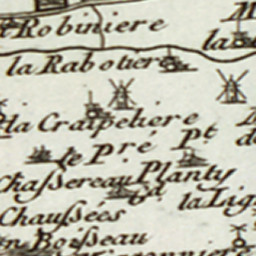 Robiniere
la
la Rabotiere
la Craipeliere
le Pré Pt
Chassereau Planty
la Lig
Chaussées
Boisseau